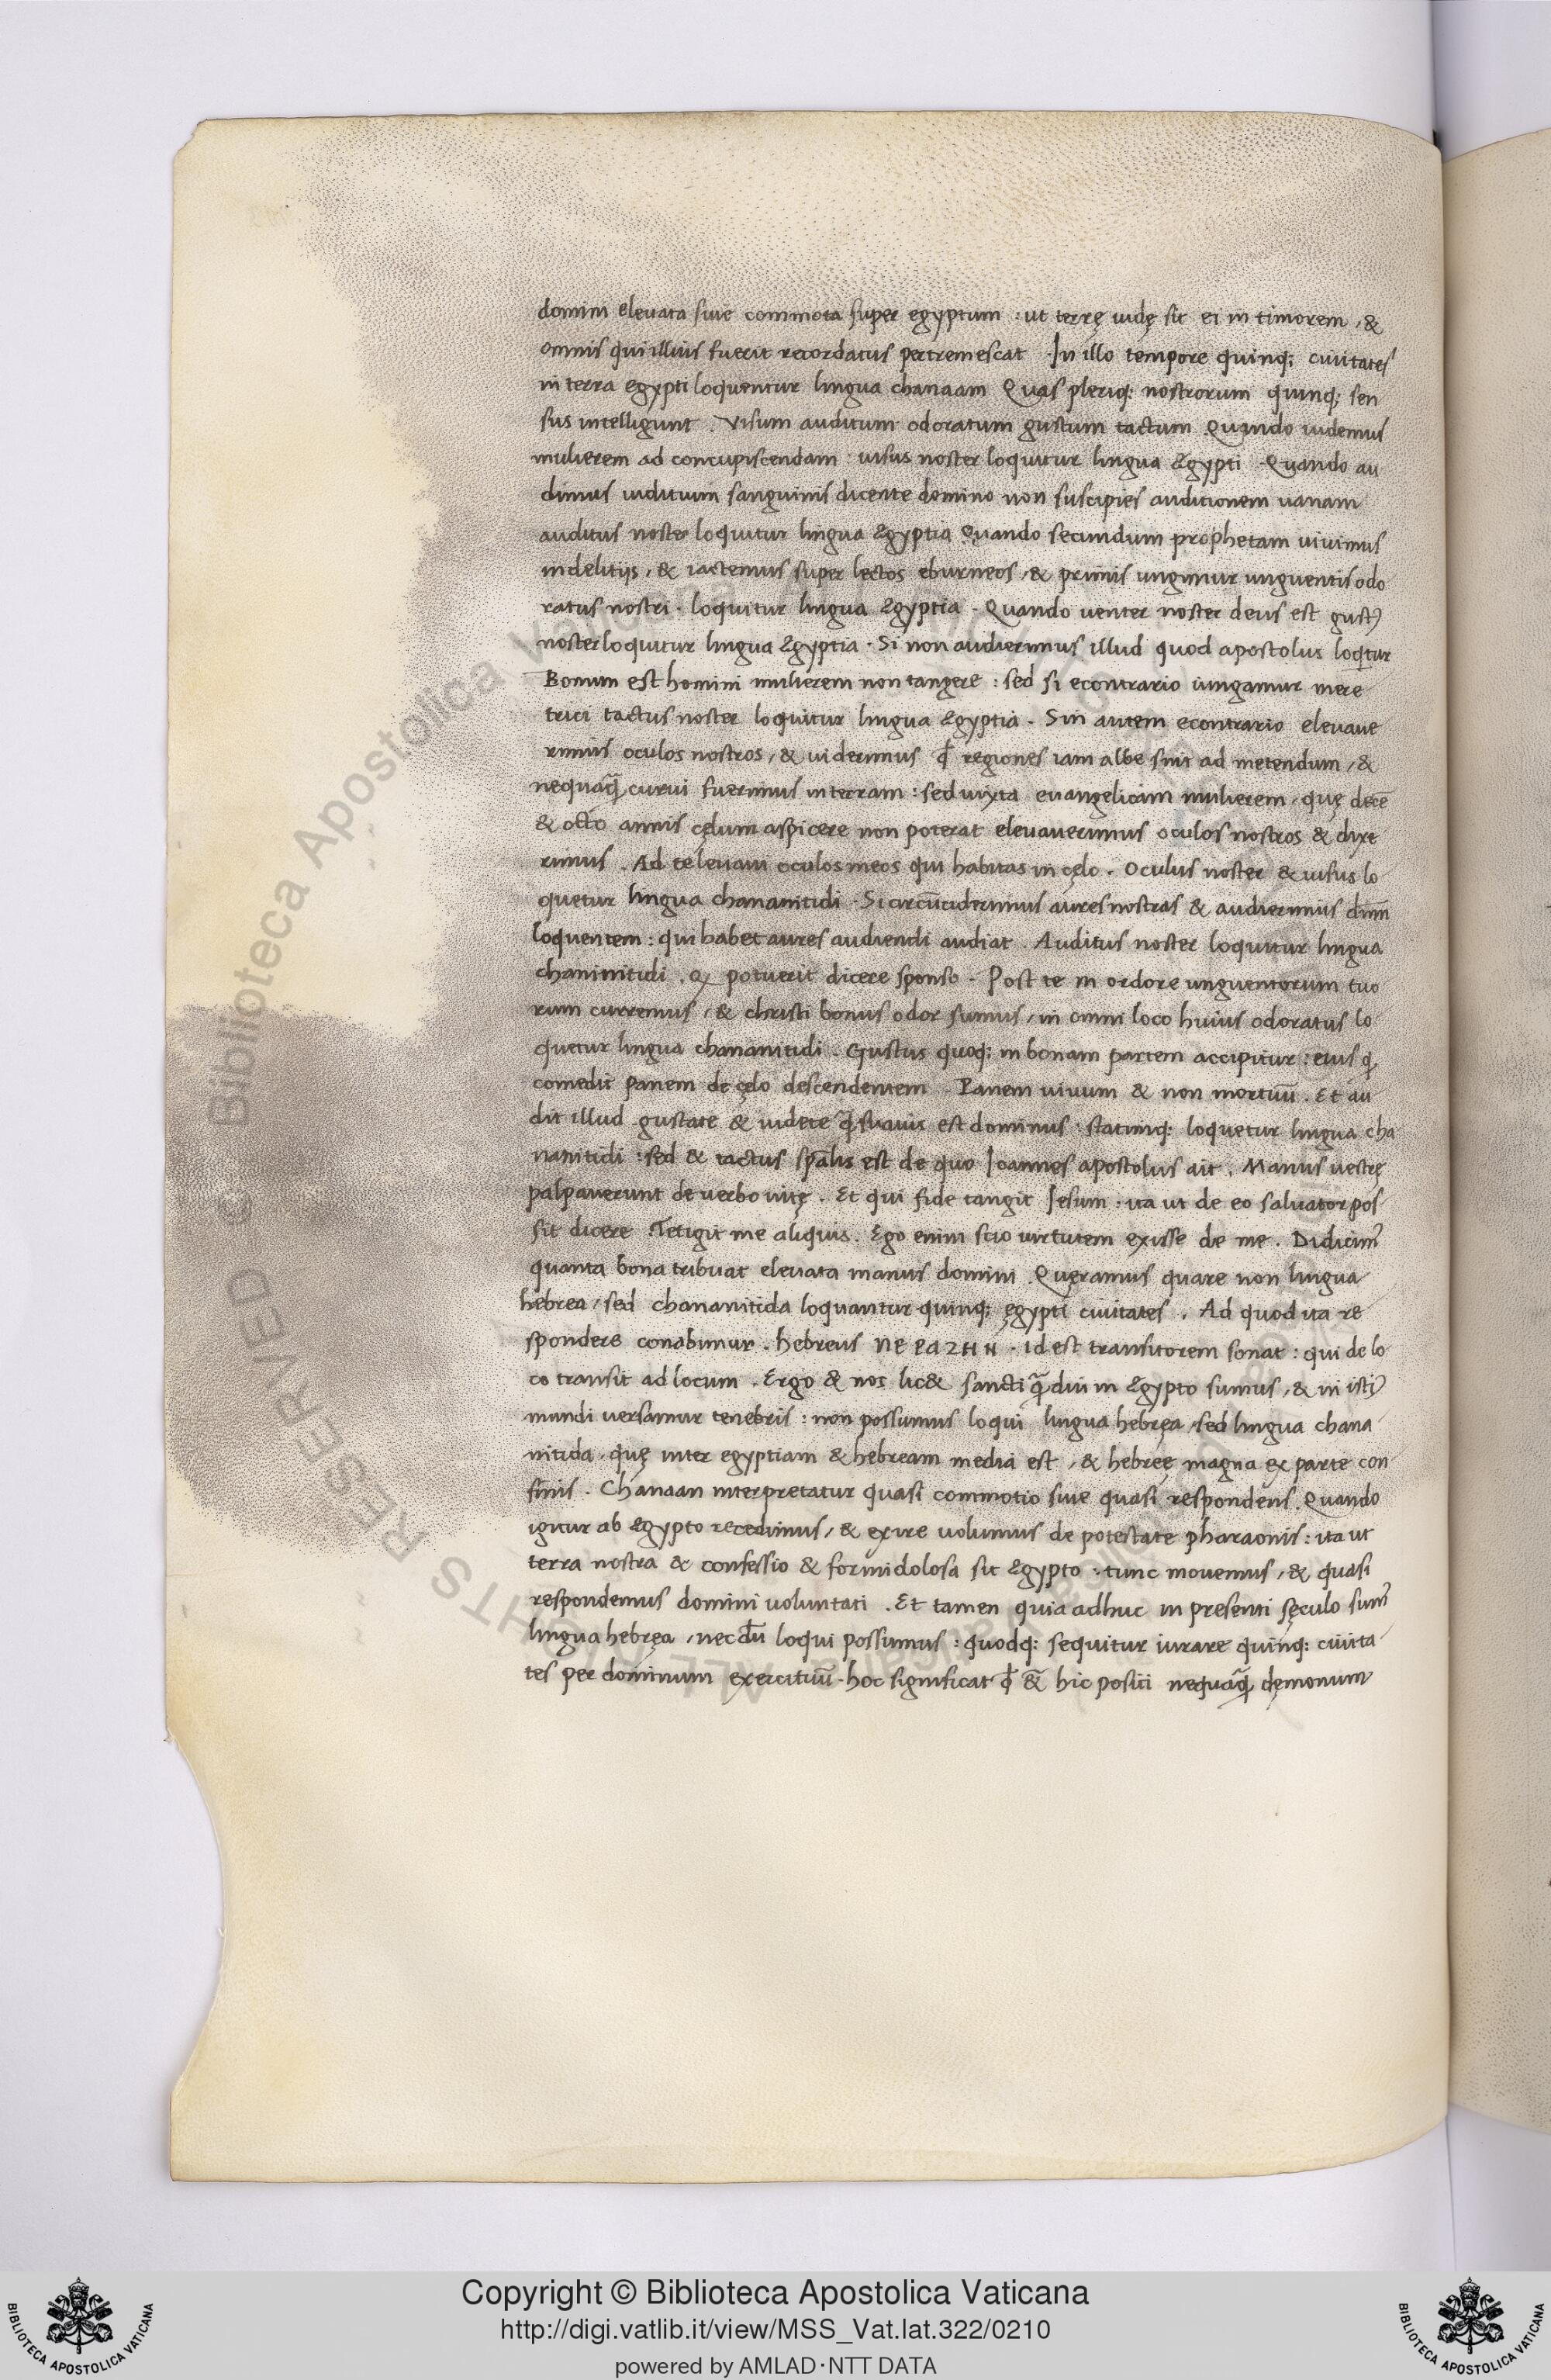 domini eleuata siue commota super egyptum : ut terrę iudę sit ei in timorem , &
omnis qui illius fuerit recordatus pertremescat . In illo tempore quinq; ciuitates
in terra egypti loquentur lingua chanaam Quas pleriq; nostrorum quinq; sen
sus intelligunt . Visum auditum odoratum gustum tactum Quando uidemus
mulierem ad concupiscendam : uisus noster loquitur lingua Egypti . Quando au
dimus iuditium sanguinis dicente domino non suscipies auditionem uanam
auditus noster loquitur lingua Egyptia Quando secundum prophetam viuimus
in delitijs , & iactemus super lectos eburneos , & primis ungimur unguentis odo
ratus nostri . loquitur lingua Egyptia . Quando uenter noster deus est gustꝰ
noster loquitur lingua Egyptia . Si non audierimus illud quod apostolus loqtur
Bonum est homini mulierem non tangere : sed si econtrario iungamur mere
trici tactus noster loquitur lingua Egyptia . Sin autem econtrario eleuaue
rimus oculos nostros , & uiderimus ꝙ regiones iam albe sint ad metendum , &
nequaq̃ curui fuerimus in terram : sed iuxta euangelicam mulierem , quę decē
& octo annis cęlum aspicere non poterat eleuauerimus oculos nostros & dixe
rimus . Ad te leuaui oculos meos qui habitas in cęlo . Oculus noster & uisus lo
quetur lingua chananitidi . Si circūciderimus aures nostras & audierimus dnm̄
loquentem : qui habet aures audiendi audiat . Auditus noster loquitur lingua
chaninitidi . Q potuerit dicere sponso . Post te in ordore unguentorum tuo
rum curremus , & christi bonus odor sumus , in omni loco huius odoratus lo
quetur lingua chananitidi . Gustus quoq; in bonam partem accipitur : eius q
comedit panem de cęlo descendentem . Panem uiuum & non mortuū . Et au
dit illud gustate & uidete q̃ suauis est dominus : statimq; loquetur lingua cha
nanitidi : sed & tactus spālis est de quo Ioannes apostolus ait . Manus uestrę
palpauerunt de uerbo uitę . Et qui fide tangit Iesum : ita ut de eo saluator pos
sit dicere . Tetigit me aliquis . Ego enim scio uirtutem exisse de me . Didicimꝰ
quanta bona tribuat eleuata manus domini . Quęramus quare non lingua
hebrea , sed chananitida loquantur quinq; ęgypti ciuitates . Ad quod ita re
spondere conabimur . hebreus ΠΕΡΑΖΗΝ . id est transitorem sonat : qui de lo
co transit ad locum . Ergo & nos lic& sancti q̃diu in Egypto sumus , & in istiꝰ
mundi uersamur tenebris : non possumus loqui lingua hebręa , sed lingua chana
nitida , quę inter egyptiam & hebream media est , & hebreę magna ex parte con
finis . Chanaan interpretatur quasi commotio siue quasi respondens . Quando
igitur ab Egypto recedimus , & exire uolumus de potestate pharaonis : ita ut
terra nostra & confessio & formidolosa sit Egypto : tunc mouemus , & quasi
respondemus domini uoluntati . Et tamen quia adhuc in presenti sęculo sumꝰ
lingua hebręa , necdū loqui possumus : quodq; sequitur iurare quinq; ciuita
tes per dominum exercituū . hoc significat ꝙ & hic positi nequaq̃ dęmonum
Copyright © Biblioteca Apostolica Vaticana
http://digi.vatlib.it/view/MSS_Vat.lat.322/0210
powered by AMLAD·NTT DATA
BIBLIOTECA APOSTOLICA VATICANA
BIBLIOTECA APOSTOLICA VATICANA